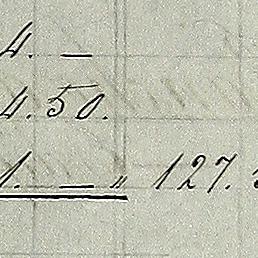 4. —
4. 50.
1. — " 127.